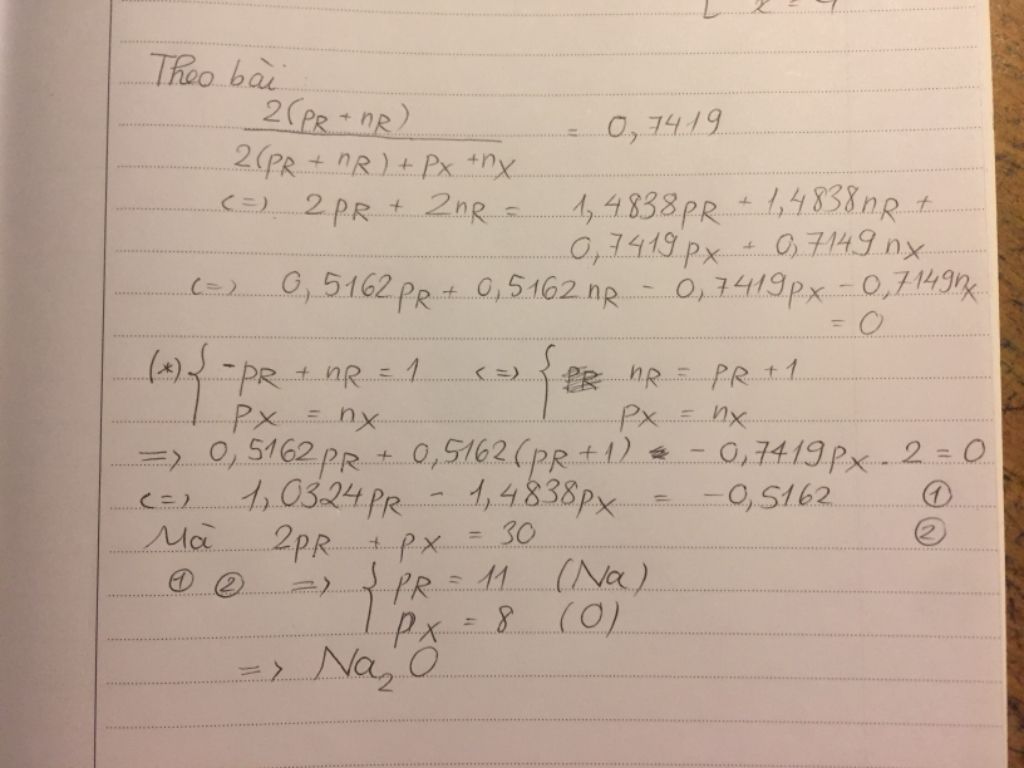 Theo bài
2(pR + nR) / 2(pR + nR) + pX + nX = 0,7419
<=> 2pR + 2nR = 1,4838pR + 1,4838nR +
0,7419pX + 0,7149nX
<=> 0,5162pR + 0,5162nR - 0,7419pX - 0,7149nX
= 0
(*) { -pR + nR = 1 <=> { nR = pR + 1
pX = nX pX = nX
=> 0,5162pR + 0,5162(pR + 1) - 0,7419pX . 2 = 0
<=> 1,0324pR - 1,4838pX = -0,5162 ①
Mà 2pR + pX = 30 ②
① ② => { pR = 11 (Na)
pX = 8 (O)
=> Na₂O